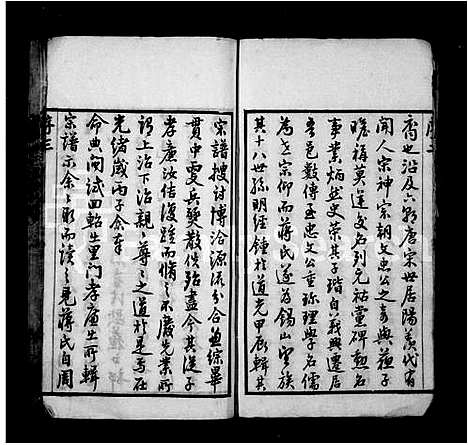 裔也沿及六朝唐宋世居陽羨代有
聞人宋神宗朝文忠公之奇與蘇子
瞻稱莫逆交名列元祐黨碑勲名
事業炳然史策其子瑎自義興遷居
吾邑數傳至忠文公重珍理學名儒
為世宗仰而蔣氏遂為錫山望族
其十八世孫明經鍾於道光甲辰輯其
宗譜搜討博洽源流分合無綜畢
貫中更兵燹散佚殆盡今其從子
孝廉汝佶復踵而脩之不廢先業所
謂上治下治親親尊尊之道於是乎在
光緒歲丙子余奉
命典閩試四輅出里門孝廉出所輯
宗譜示余余取而讀之見蔣氏自周
序三
序二